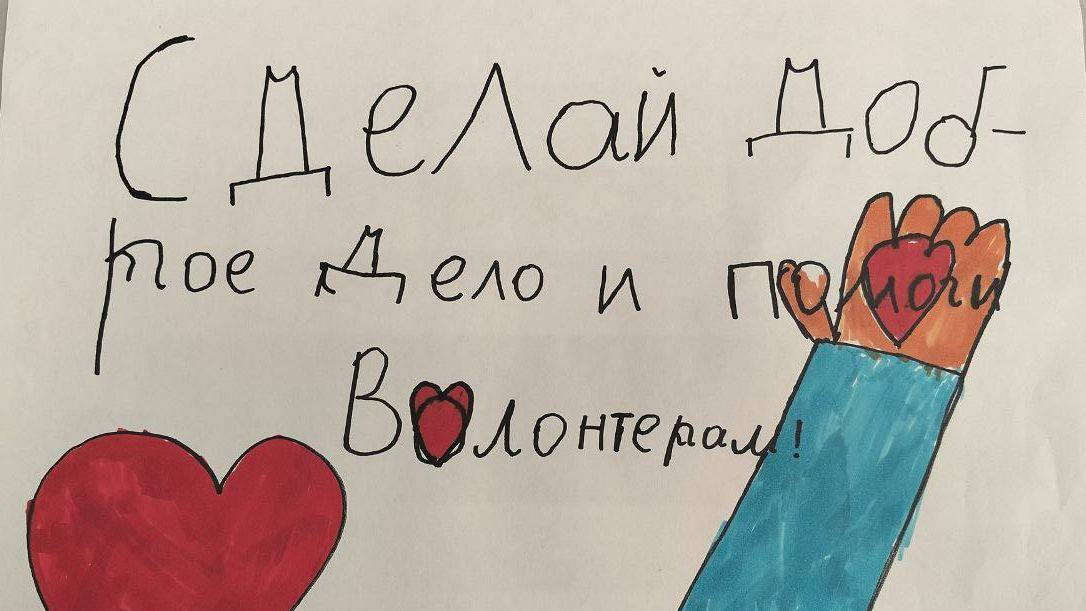 Сделай доб-
рое дело и помочи
Волонтерам!